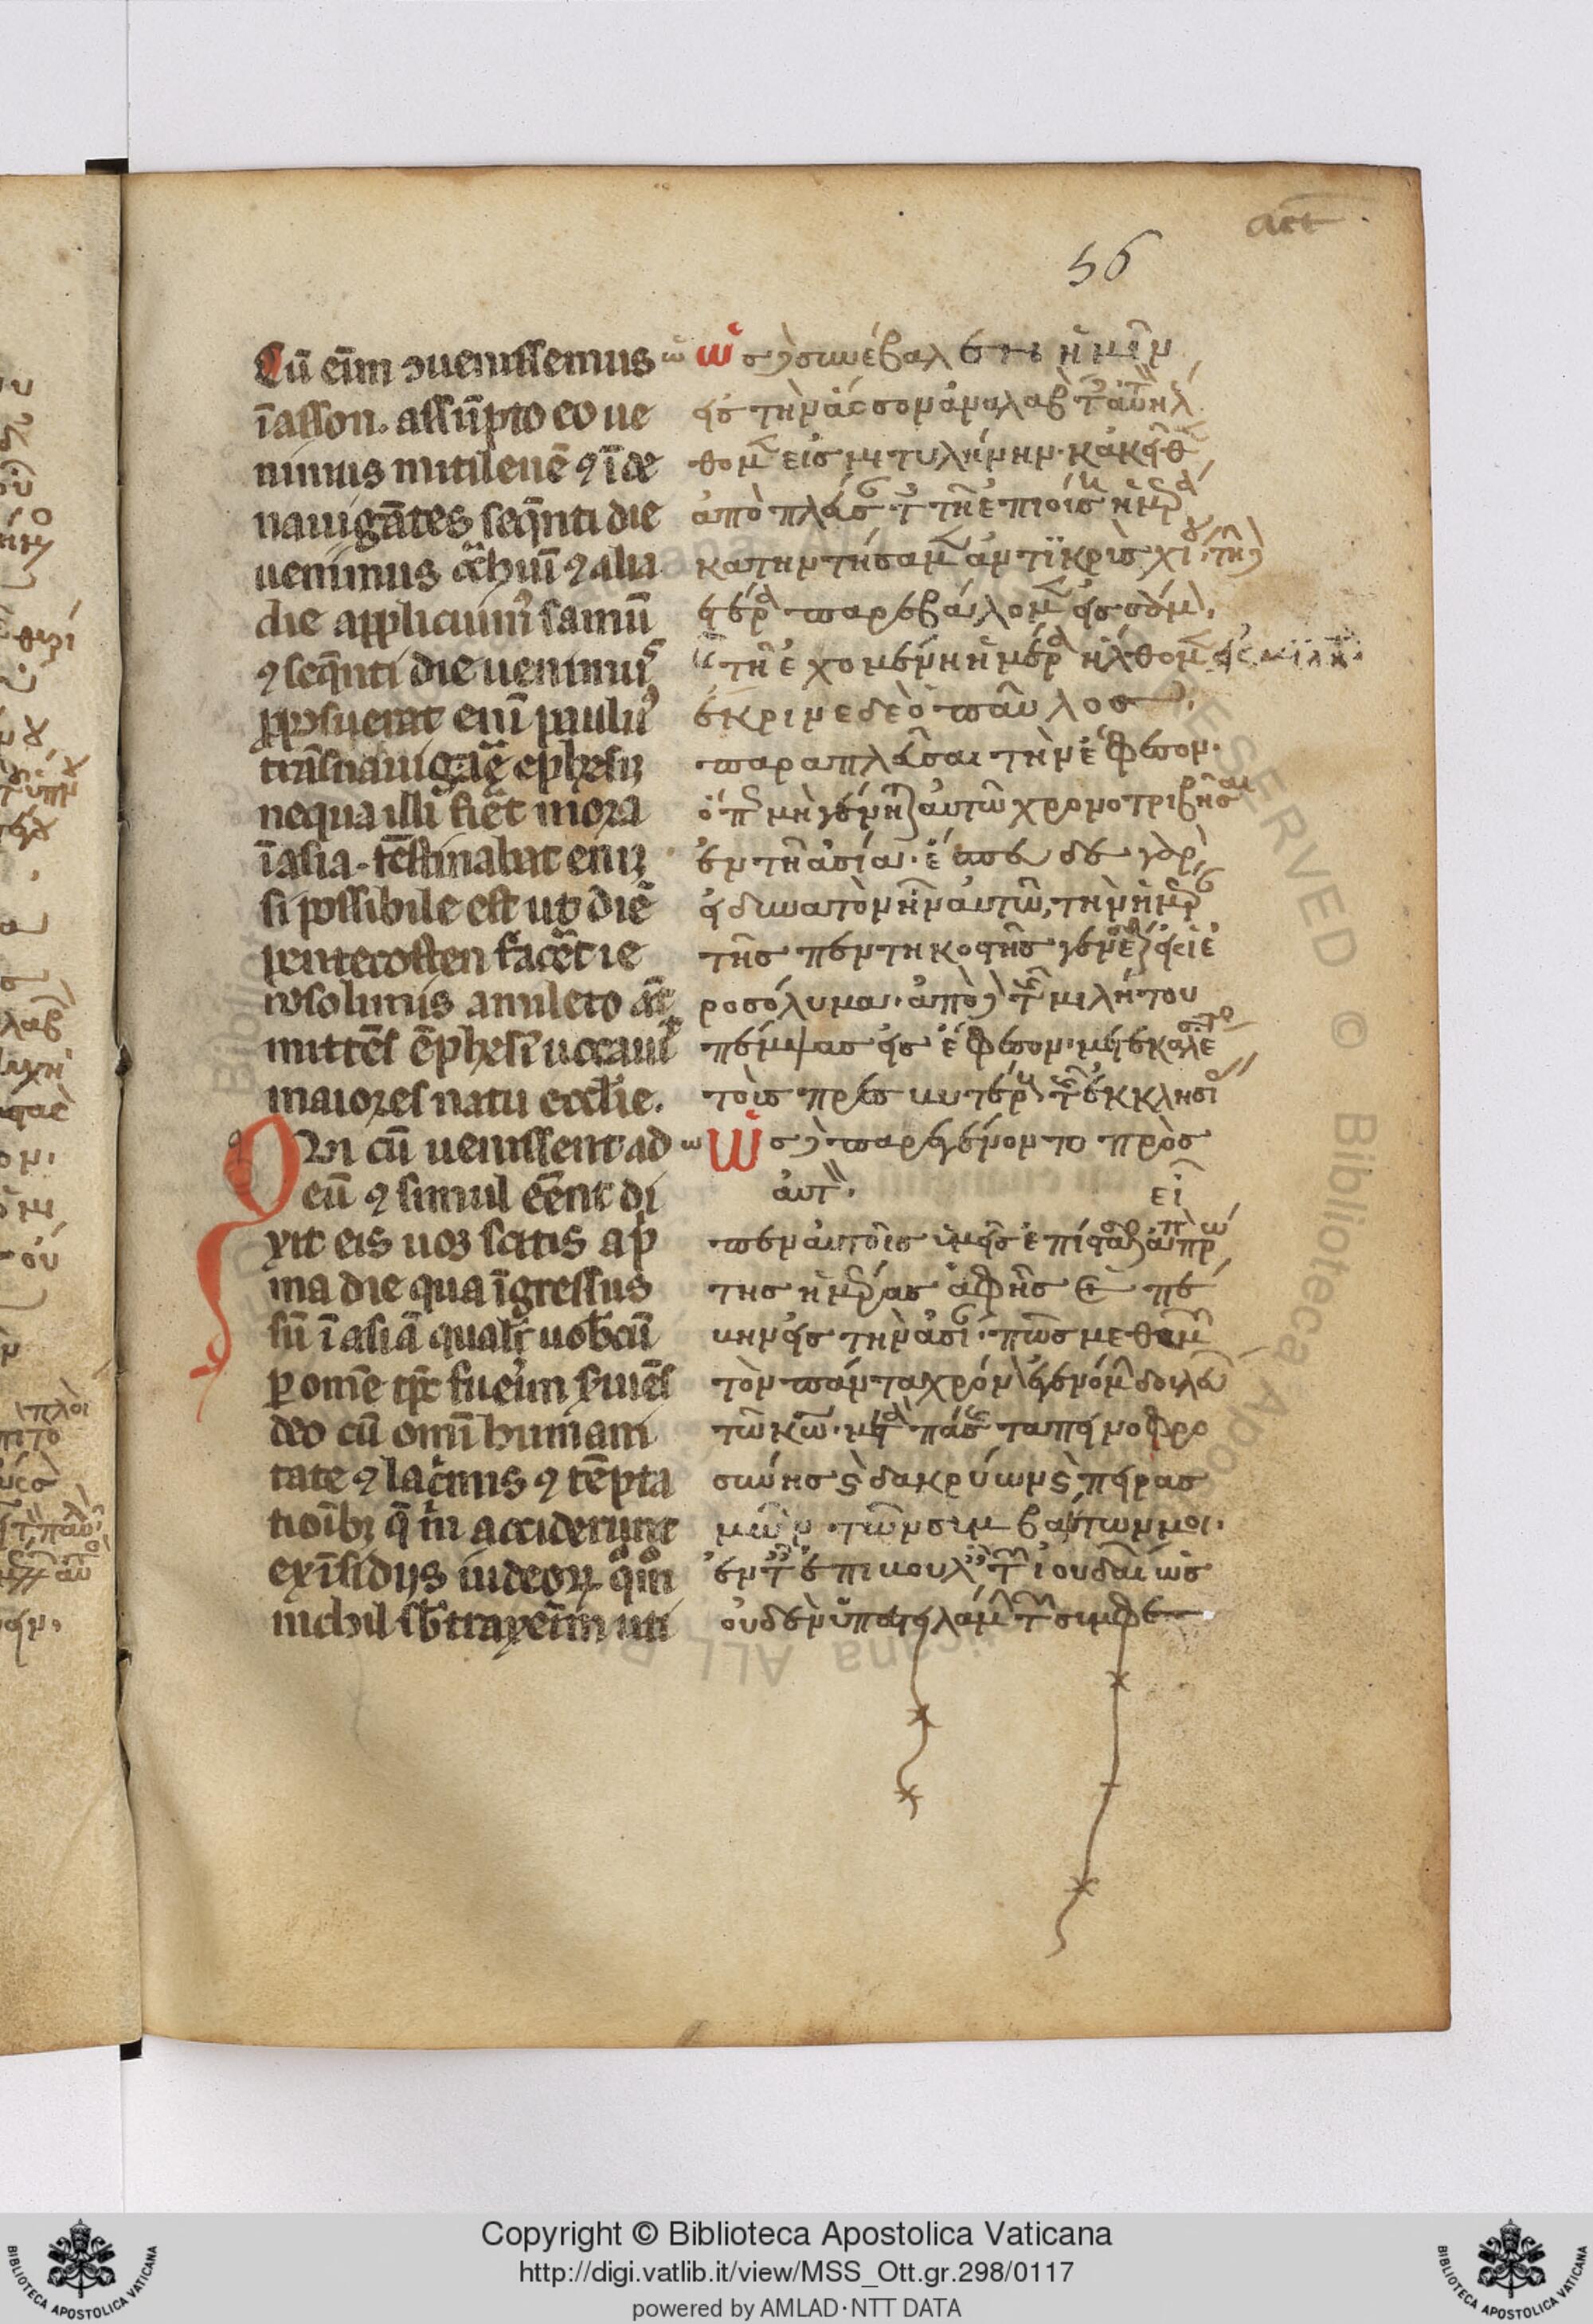 act
56
Cū eīm ꝯuenissemus
ī asson. assūpto eo ue
nimus mitilenē ⁊ īde
nauigātes seq̄nti die
uenimus ↄ̄ chiuī ⁊ alia
die applicuim᷒ samū
⁊ seq̄nti die uenimus
ꝓposuerat enī paulus
trāsnauigare ephesuꝫ
nequa illi fiēt mora
ī asia. festinabat enīꝫ
si possibile est ut diē
pentecosten facēt ie
rosolimis amileto āt
mittēs ephesū uocauit
maiores natu ecclie.
Qui cū uenissent ad
eū ⁊ simul eēnt di
xit eis uoꝫ scitis a pͥ
ma die qua īgressus
sū ī asiā qualit uobcū
ꝑ omē tp̄c fuerim s̄uiēs
deo cū omī humani
tate ⁊ lacͥmis ⁊ tēpta
tioībꝫ q̄ m̄ acciderunt
ex īsidijs iudeoꝝ qͦm̄
nichil sbtraxerim uti
ὡς δὲ συνέβαλεν ἡμῖν
εἰς τὴν ἄσσον ἀναλαβ αὐτ ἤλ
θομ εἰς μιτυλήνην. κἀκεῖθ
ἀποπλευσ τῆ ἐπιούσ ἡμρ
κατηντήσαμ ἀντικρὺς χίου τῆ δὲ
ἑτέρα παρεβάλομ εἰς σάμ
τῆ ἐχομένη ἡμέρα ἤλθομ εἰς μίλητ.
ἔκρινε δὲ ὁ παῦλος
παραπλεῦσαι τὴν ἔφεσον.
ὅπ μὴ γένητ αὐτῶ χρονοτριβῆσαι
ἐν τῆ ἀσία. ἔσπευδε γὰρ
εἰ δυνατὸν ἦν αὐτῶ, τὴν ἡμρ
τῆς πεντηκοστῆς γενέσθ εἰς ἱε
ροσόλυμα. ἀπὸ δὲ τ μιλήτου
πέμψας εἰς ἔφεσον. μετεκαλέσατο
τοὺς πρεσβυτέρ τ ἐκκλησί
ὡς δὲ παρεγένοντο πρὸς
αὐτ. εἶ
πεν αὐτοῖς ὑμεῖς ἐπίστασθ ἀπὸ πρώ
της ἡμέρας ἀφ ἧς ἐπέ
βην εἰς τὴν ἀσί. πῶς μεθ ὑμ
τὸν πάντα χρόν ἐγενόμ δουλευ
τῶ κῶ. μτ πάσ ταπεινοφρο
σύνης ϛ δακρύων ϛ πειρασ
μῶν τῶν συμβάντων μοι.
ἐν τ ἐπιβουλ τ ἰουδαίων ὡς
οὐδὲν ὑπεστειλάμ τ συμφε
Copyright © Biblioteca Apostolica Vaticana
http://digi.vatlib.it/view/MSS_Ott.gr.298/0117
powered by AMLAD·NTT DATA